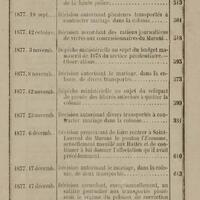 de la haute police 313
1877. 19 sept. Décision autorisant plusieurs transportés à
contracter mariage dans la colonie. 501
1877. 12 octobre. Décision autorisant des rations journalières
de vivres aux concessionnaires du Maroni 518
1877. 3 novemb. Dépêche ministérielle au sujet du budget ma-
de 1878 du service pénitentiaire.
Observations 595
1877. 8 novemb. Décision autorisant le mariage, dans la co-
lonie, de divers transportés 573
1877. 22 novemb. Dépêche ministérielle au sujet du
de procès des libérés autorisés à quitter la
colonie 599
1877. 23 novemb. Décision autorisant divers transportés à con-
tracter mariage dans la colonie 551
1877. 6 décemb. Décision prescrivant de faire rentrer à Saint-
Laurent du Maroni le ponton l'Économe,
actuellement mouillé aux Hattes et de con-
tinuer à lui donner l'affectation qu'il avait
précédemment 610
1877. 17 décemb. Décision autorisant le mariage, dans la colo-
nie, de deux transportés 643
1877. 17 décemb. Décision accordant, exceptionnellement, un
salaire journalier aux transportés
sant le régime du peloton de correction